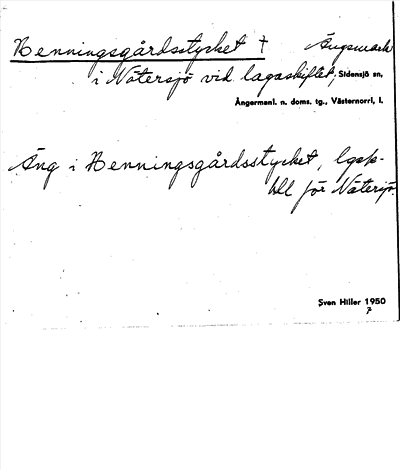 Henningsgårdsstycket † Ängsmark
i Nätersjö vid lagaskiftet, Sidensjö sn,
Ångermanl. n. doms. tg., Västernorrl. l.
Äng i Henningsgårdsstycket, lgsk-
hll för Nätersjö.
Sven Hiller 1950